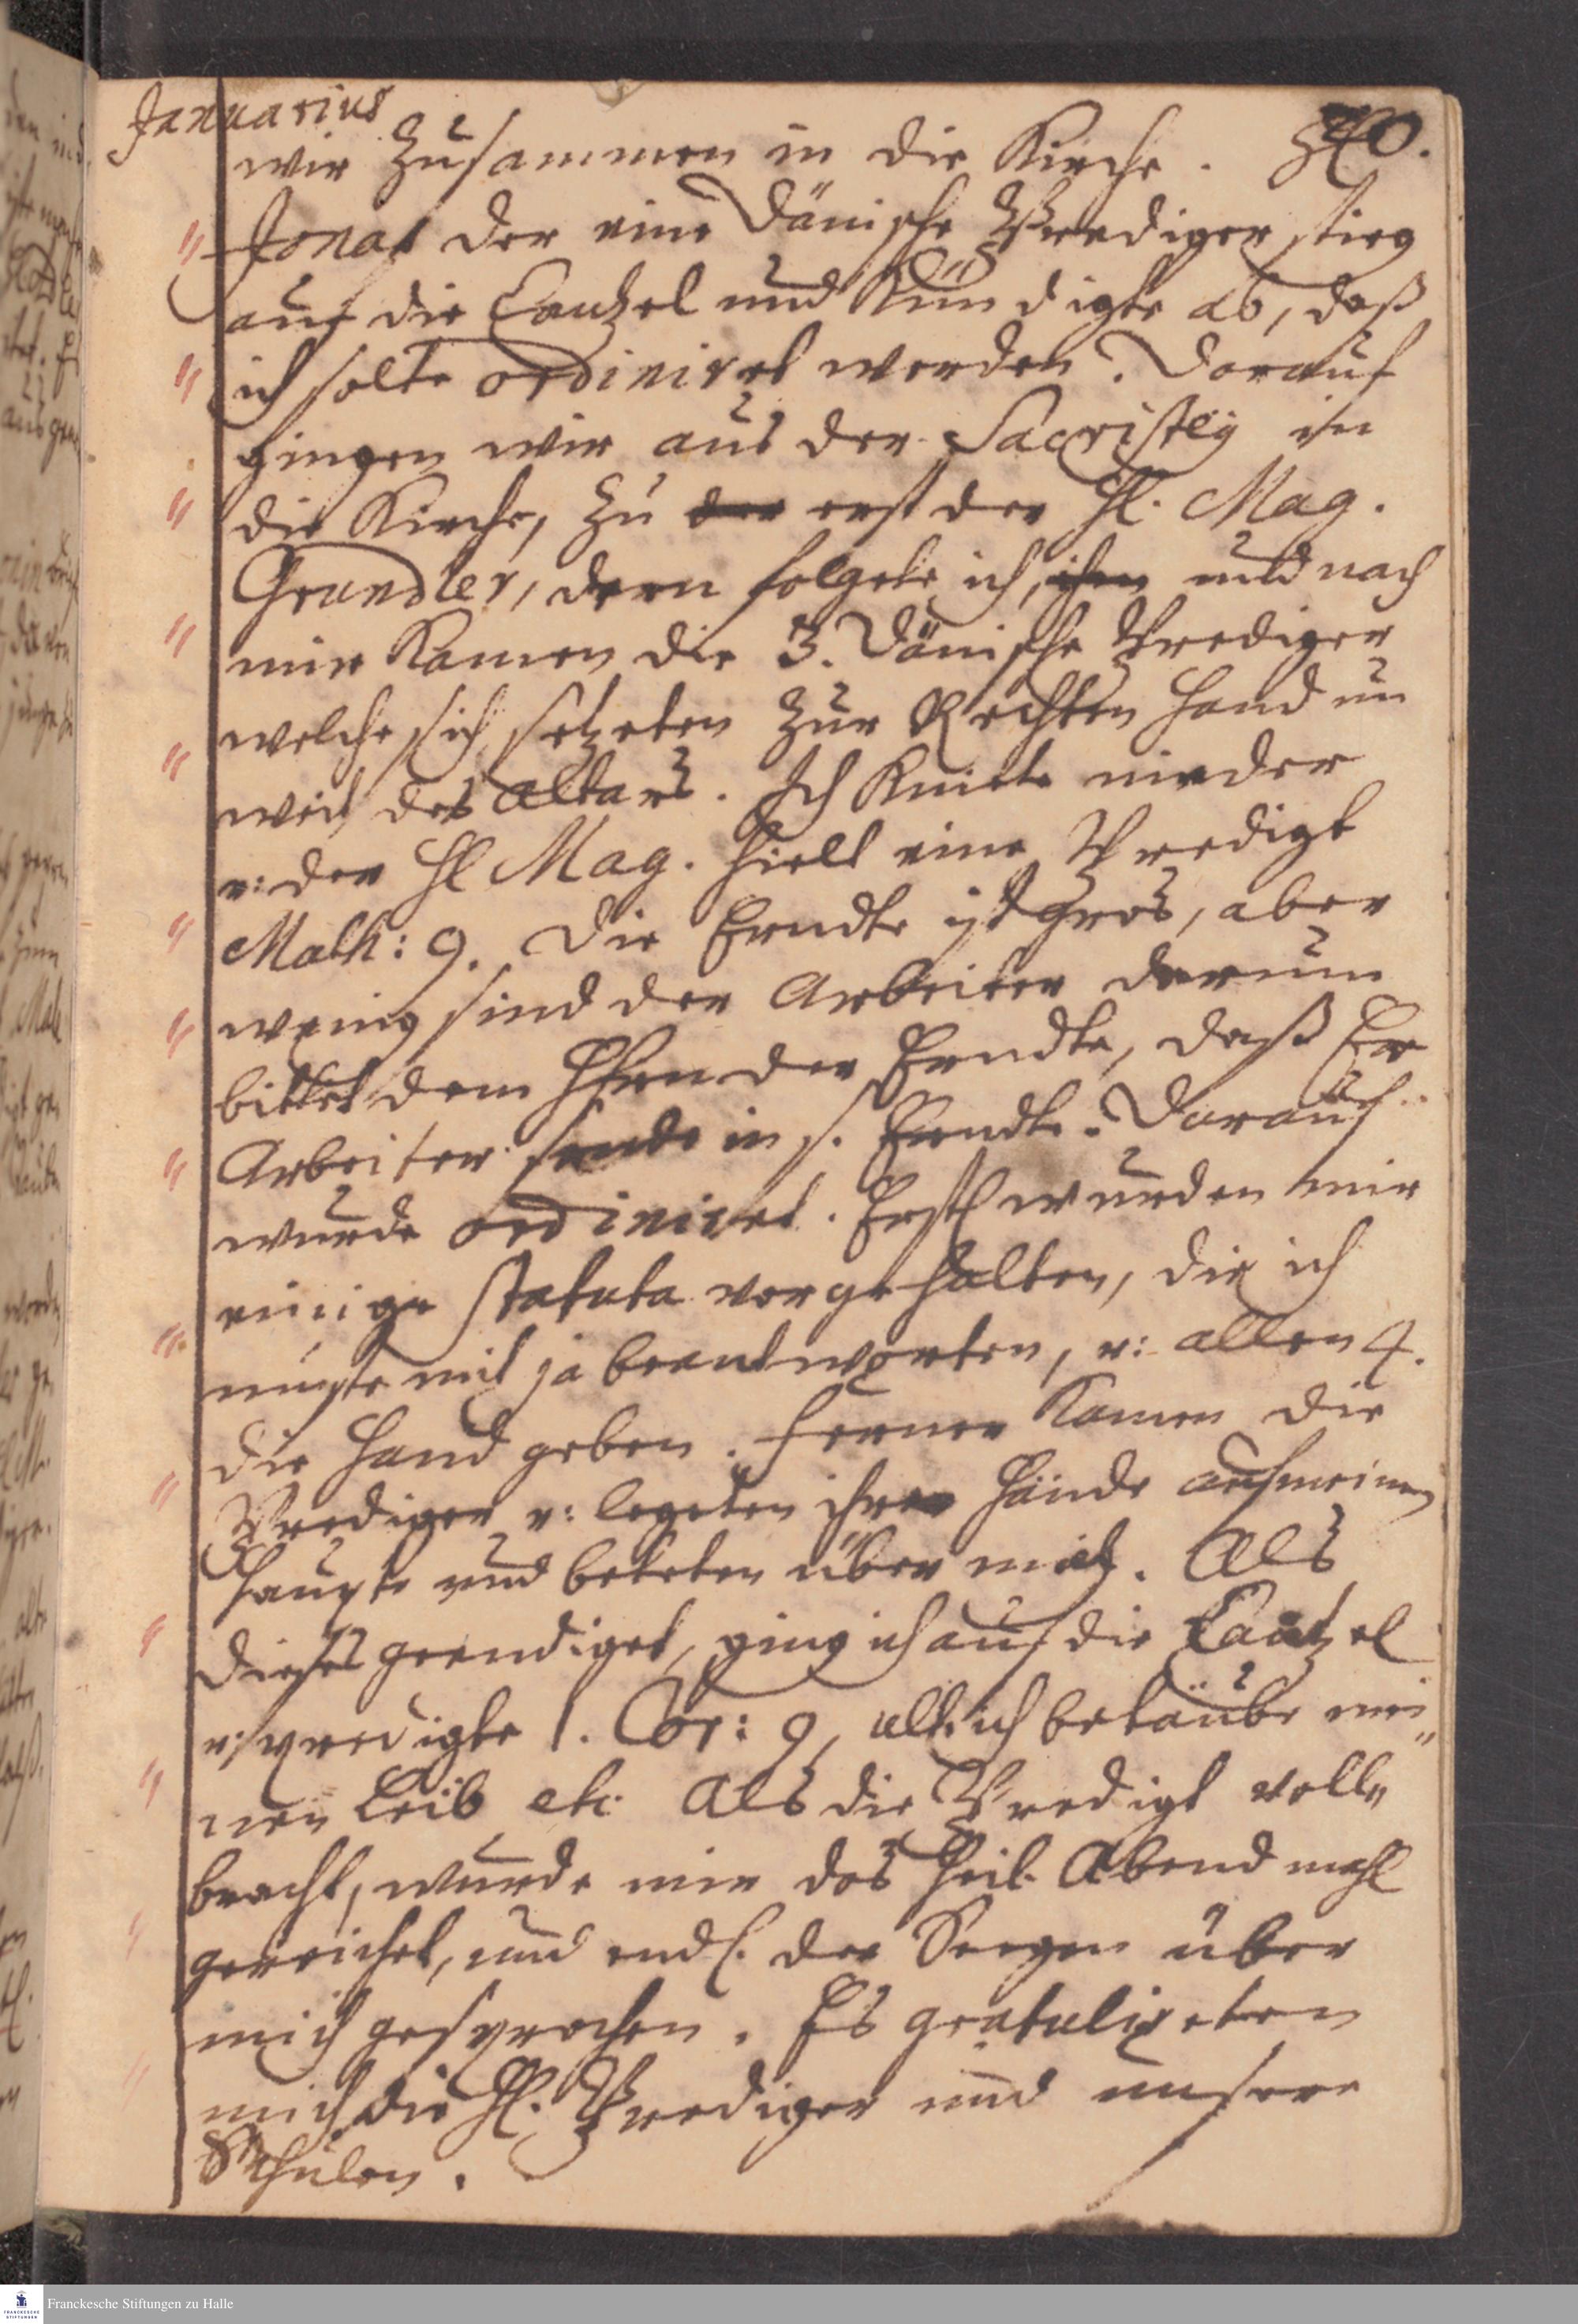 Januarius
wir Zusammen in die Kirche. 340.
Jonas der eine Dänische Prediger stieg
auf die Cantzel und Kündigte ab, daß
ich solte ordiniret werden. Darauf
gingen wir aus der Sacristey in
die Kirche, Zu der erst der H. Mag.
Grundler, dem folgete ich, ihm und nach
mir Kamen die 3. Dänische Prediger
welche sich setzeten Zur Rechten Hand un
weit des Altars. Ich Kniete nieder
u: der H Mag. hielt eine Predigt
Math: 9. Die Erndte ist Gros, aber
wenig sind der Arbeiter darum
bittet dem HErrn der Erndte, daß Er
Arbeiter sende in s. Erndte. Darauf
wurde ordiniret. Erstl wurden mir
einige statuta vorgehalten, die ich
muste mit ja beantworten, u: allen 4.
die Hand geben. Ferner Kamen die
Prediger u: legeten ihre Hände auf meinen
Haupte und beteten über mich. Als
dieses geendiget, ging ich auf die Cantzel
u: predigte 1. Cor: 9, ult. ich betäube mei„
nen Leib etc. Als die Predigt voll„
bracht, wurde mir das Heil. Abendmahl
gereichet, und endl. der Seegen über
mich gesprochen. Es gratulireten
mich die H. Prediger und unsere
Schulen.
Franckesche Stiftungen zu Halle